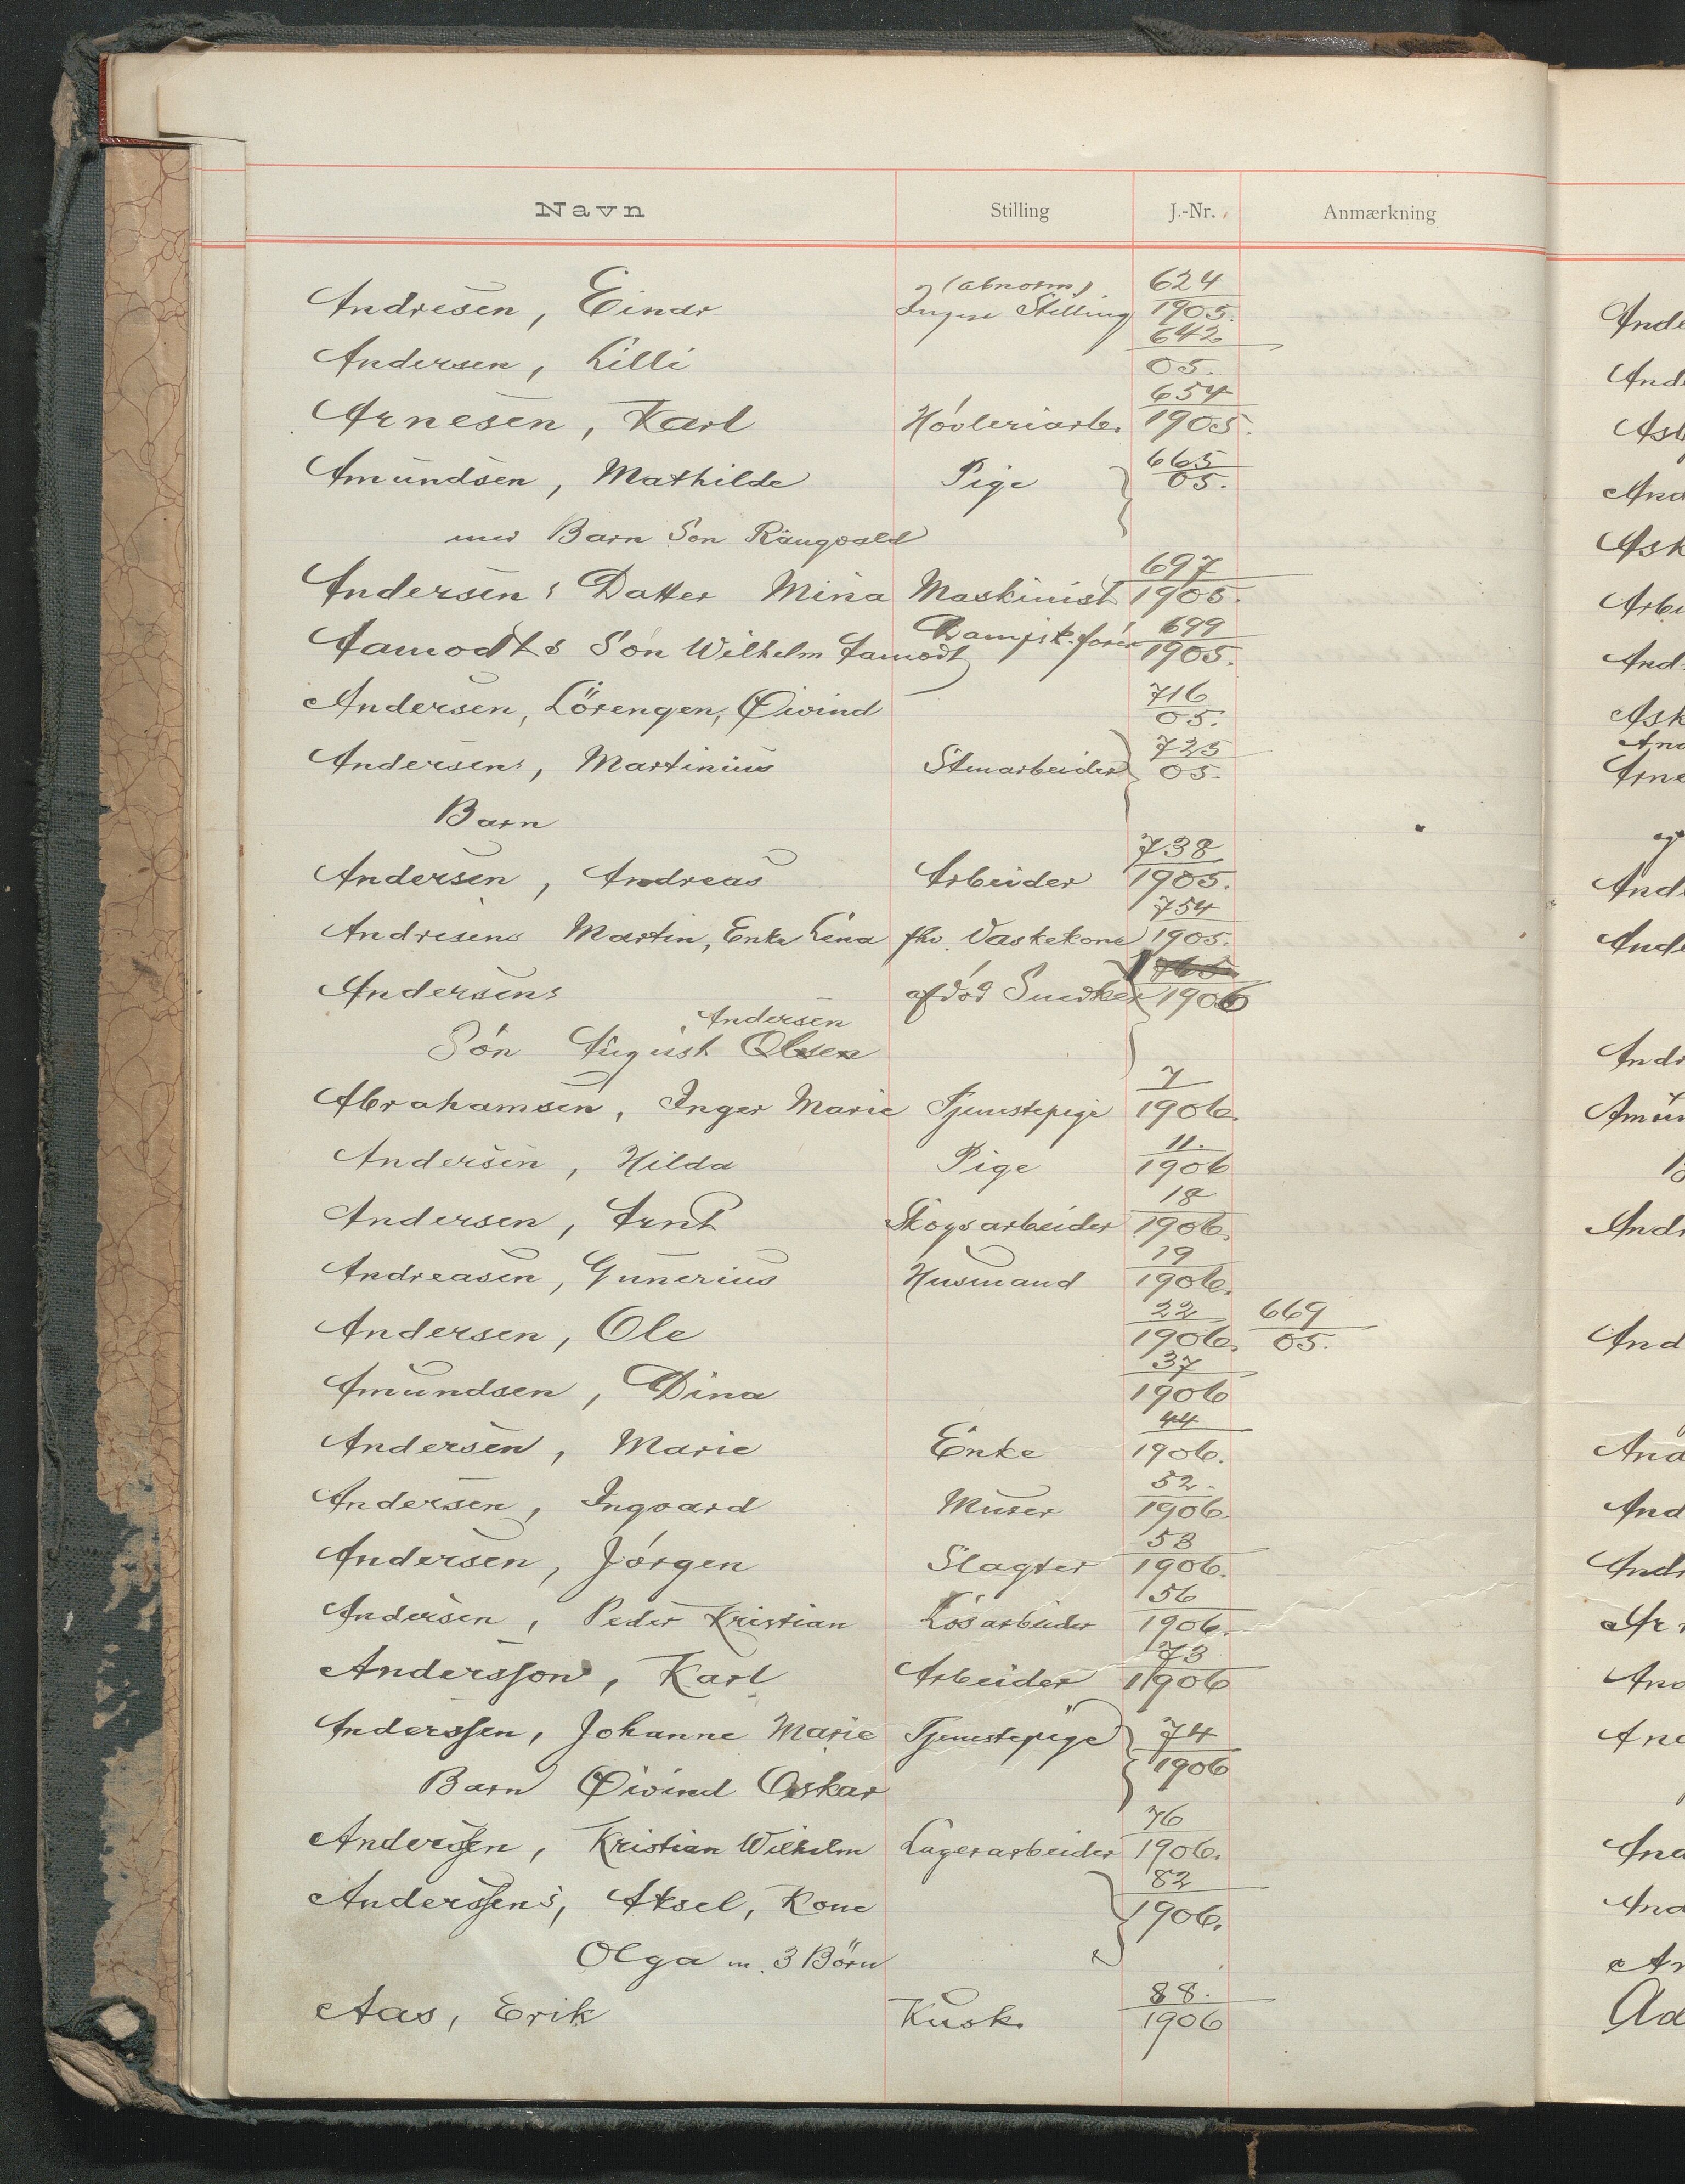 Navn Stilling J.-Nr. Anmærkning
Andresen, Einar (abnorm) Ingen Stilling 624/1905.
Andersen, Lilli 642/05.
Arnesen, Karl Høvleriarb. 654/1905.
Amundsen, Mathilde Pige 665/05.
med Barn Søn Rangvald
Andersens Datter Mina Maskinist 697/1905.
Aamodts Søn Wilhelm Aamodt Dampsk.fører 699/1905.
Andersen, Lörengen, Øivind 716/05.
Andersens, Martinius Stenarbeider 725/05.
Barn
Andersen, Andreas Arbeider 738/1905.
Andresens Martin, Enke Lina fhv. Vaskekone 754/1905.
Andersens afdød Snedker 1906
Andersen
Søn August Olsen
Abrahamsen, Inger Marie Tjenestepige 7/1906.
Andersen, Hilda Pige 11./1906
Andersen, Arnt Skogsarbeider 18/1906.
Andreasen, Gunerius Husmand 19/1906.
Andersen, Ole 22/1906. 669/05.
Amundsen, Dina 37/1906
Andersen, Marie Enke 44/1906.
Andersen, Ingvard Murer 52./1906.
Andersen, Jørgen Slagter 53/1906.
Andersen, Peder Kristian Løsarbeider 56/1906.
Andersson, Karl Arbeider 73/1906
Anderssen, Johanne Marie Tjenestepige 74/1906
Barn Øivind Oskar
Anderssen, Kristian Wilhelm Lagerarbeider 76/1906.
Anderssens, Aksel, Kone 82/1906.
Olga m. 3 Börn
Aas, Erik Kusk. 88./1906